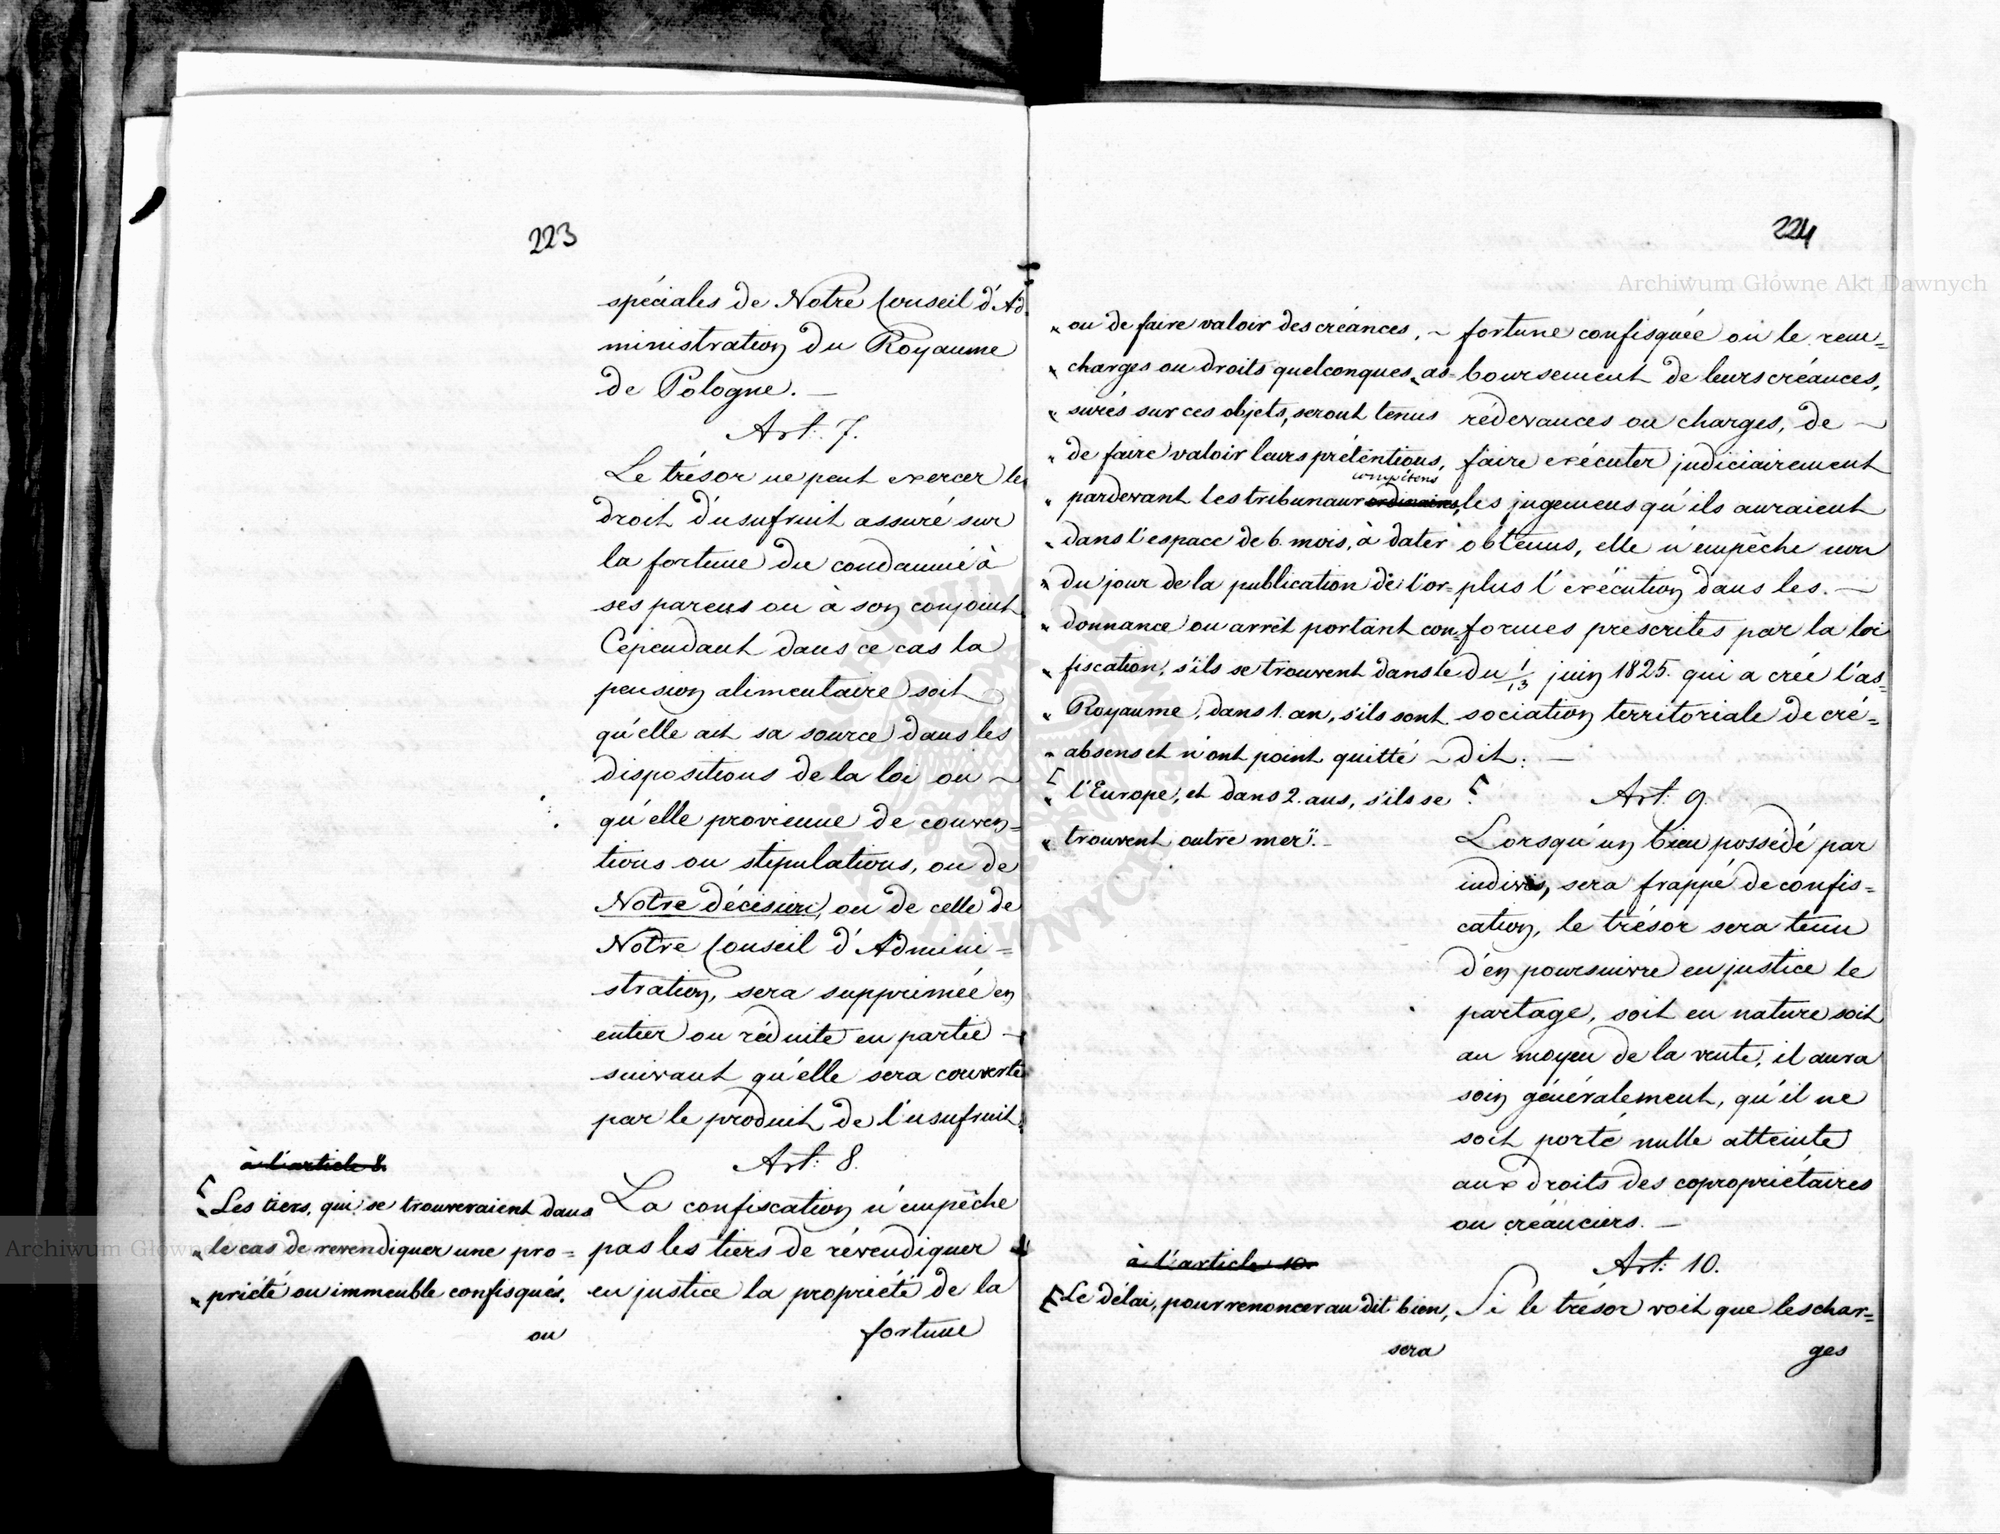 223
spéciales de Notre Conseil d'Ad
ministration du Royaume
de Pologne. —
Art. 7.
Le trésor ne peut exercer le
droit d'usufruit assuré sur
la fortune du condamné à
ses parens ou à son conjoint
Cependant dans ce cas la
pension alimentaire soit
qu'elle ait sa source dans les
dispositions de la loi ou ~
qu'elle provienne de conven=
tions ou stipulations, ou de
Notre décision, ou de celle de
Notre Conseil d'Admini=
stration, sera supprimée en
entier ou réduite en partie —
suivant qu'elle sera couverte
par le produit de l'usufruit.
Art: 8.
La confiscation n'empêche
pas les tiers de révendiquer
en justice la propriété de la
fortune
à l'article 8.
Les tiers, qui se trouveraient dans
„ le cas de revendiquer une pro=
„ priété ou immeuble confisqués,
ou
224
„ ou de faire valoir des créances, ~
„ charges ou droits quelconques, as=
„ surés sur ces objets, seront tenus
„ de faire valoir leurs prétentions,
compétens
„ pardevant les tribunaux ordinaires,
„ dans l'espace de 6. mois, à dater
„ du jour de la publication de l'or=
„ donnance ou arrêt portant con=
„ fiscation, s'ils se trouvent dans le
„ Royaume, dans 1. an, s'ils sont
„ absens et n'ont point quitté ~
„ l'Europe, et dans 2. ans, s'ils se
„ trouvent outre mer". -
fortune confisquée ou le rem=
boursement de leurs créances,
rédevances ou charges, de ~
faire exécuter judiciairement
les jugemens qu'ils auraient
obtenus, elle n'empêche non
plus l'exécution dans les. —
formes prescrites par la loi
du 1/13 juin 1825. qui a créé l'as=
sociation territoriale de cré=
dit. —
Art: 9.
Lorsqu'un bien possédé par
indivis, sera frappé de confis=
cation, le trésor sera tenu
d'en poursuivre en justice le
partage, soit en nature soit
au moyen de la vente, il aura
soin généralement, qu'il ne
soit porté nulle atteinte
aux droits des copropriétaires
ou créanciers. —
Art: 10.
Si le trésor voit que les char=
ges
à l'article 10.
Le délai, pour renoncer au dit bien,
sera
Archiwum Główne Akt Dawnych